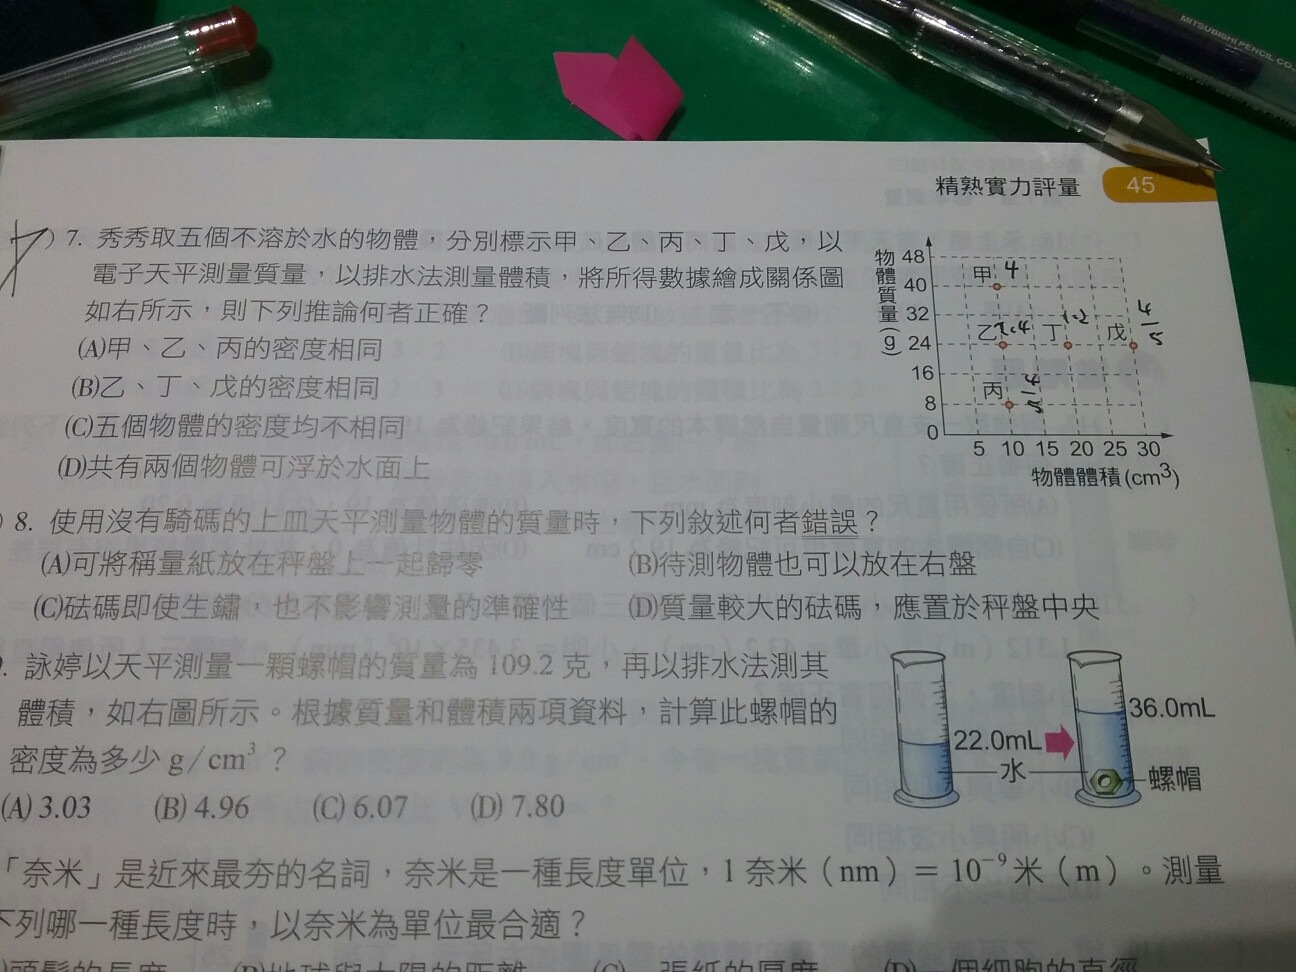 MITSUBISHI PENCIL CO.
精熟實力評量 45
) 7. 秀秀取五個不溶於水的物體，分別標示甲、乙、丙、丁、戊，以
電子天平測量質量，以排水法測量體積，將所得數據繪成關係圖
如右所示，則下列推論何者正確？
(A)甲、乙、丙的密度相同
(B)乙、丁、戊的密度相同
(C)五個物體的密度均不相同
(D)共有兩個物體可浮於水面上
物體質量(g)
48
40
32
24
16
8
0
甲 4
乙 2.4 丁 1.2 戊 4/5
丙 4/5
5 10 15 20 25 30
物體體積(cm³)
) 8. 使用沒有騎碼的上皿天平測量物體的質量時，下列敘述何者錯誤？
(A)可將稱量紙放在秤盤上一起歸零 (B)待測物體也可以放在右盤
(C)砝碼即使生鏽，也不影響測量的準確性 (D)質量較大的砝碼，應置於秤盤中央
. 詠婷以天平測量一顆螺帽的質量為 109.2 克，再以排水法測其
體積，如右圖所示。根據質量和體積兩項資料，計算此螺帽的
密度為多少 g/cm³？
(A) 3.03 (B) 4.96 (C) 6.07 (D) 7.80
22.0mL
36.0mL
水
螺帽
「奈米」是近來最夯的名詞，奈米是一種長度單位，1 奈米（nm）＝ 10⁻⁹ 米（m）。測量
下列哪一種長度時，以奈米為單位最合適？
)頭髮的長度 (B)地球與太陽的距離 (C)一張紙的厚度 (D)一個細胞的直徑